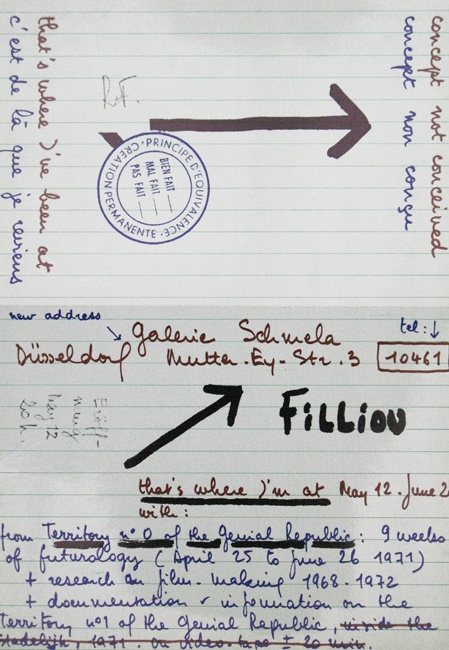 concept not conceived
concept non conçu
R.F.
CRÉATION PERMANENTE · PRINCIPE D'EQUIVALENCE ·
BIEN FAIT
MAL FAIT
PAS FAIT
that's where I've been at
c'est de là que je reviens
new address
galerie Schmela
tel:
Düsseldorf Mutter-Ey-Str. 3
10461
Eröff-
nung
May 12
20 h.
FiLLiOU
that's where I'm at May 12 - June 2
with:
from Territory n° 0 of the Genial Republic: 9 weeks
of futurology (April 25 to June 26 1971)
+ research on film-making 1968-1972
+ documentation & information on the
Territory n°1 of the Genial Republic, inside the
Stedelijk, 1971. on video-tape ± 20 min.